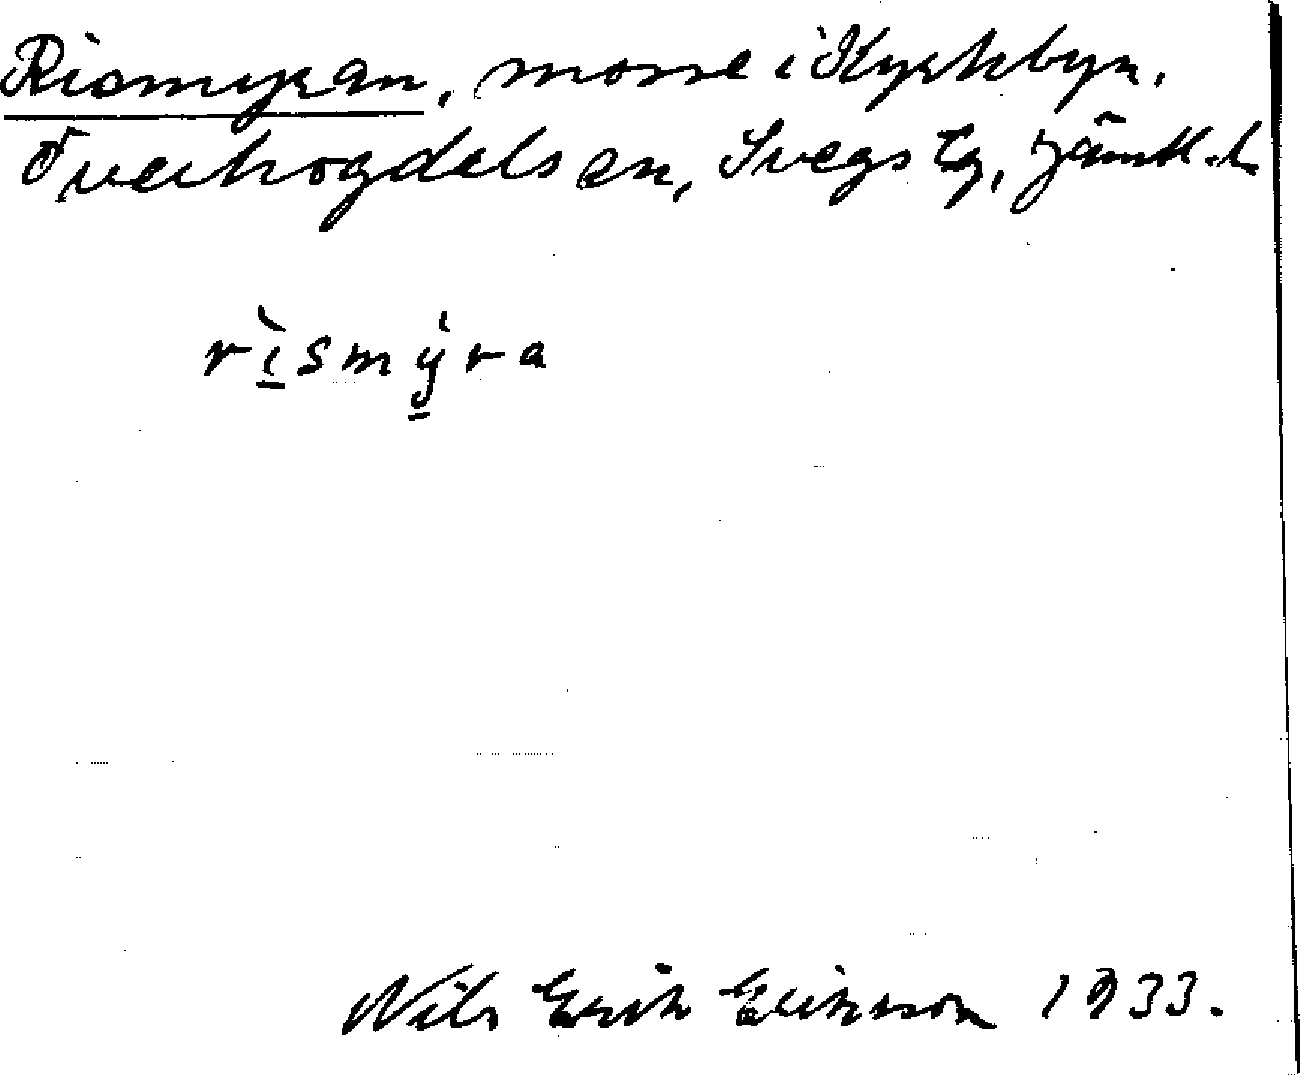 Rismyran, mosse i Kyrkbyn,
Överhogdals sn, Svegs tg, Jämtl. l.
rìsmỳra
Nils Erik Eriksson 1933.